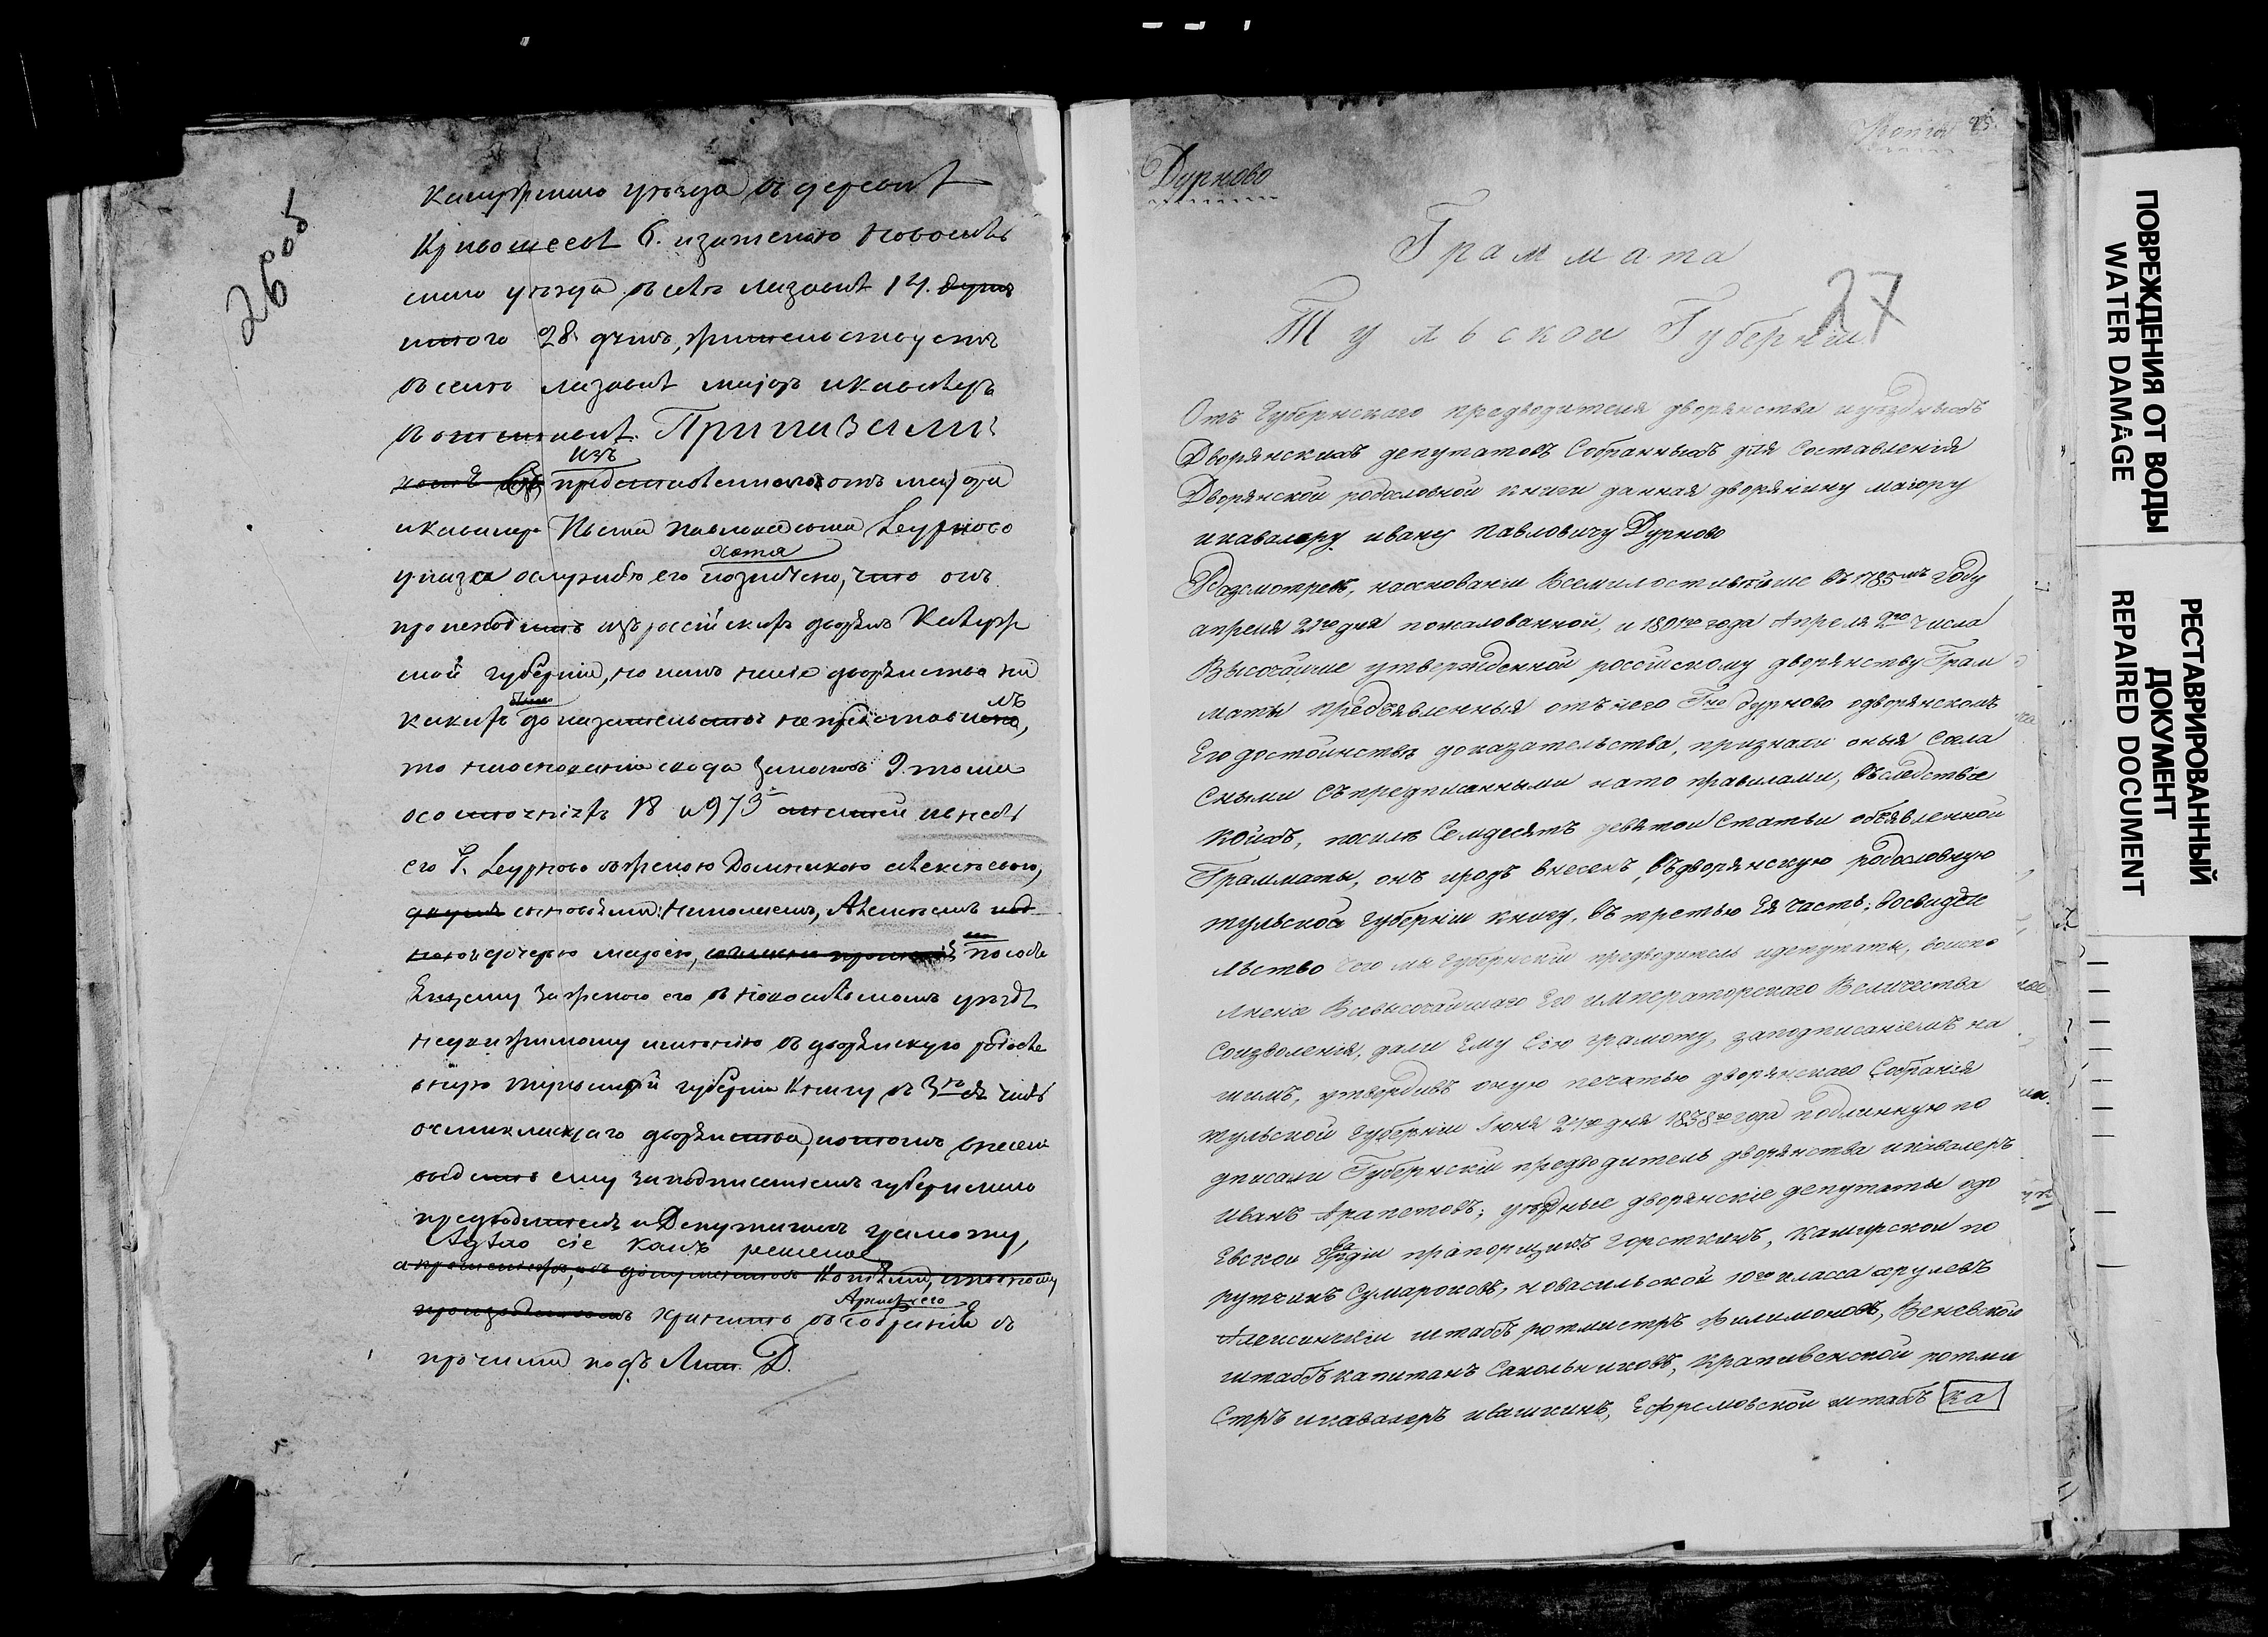 26 об
Каширскаго уезда въ деревнѣ
Кривошеевѣ 6. изаженою Новосиль
скаго уѣзда въ селѣ лизавѣ 14.
итого 28 душъ, жительствуетъ
въ селѣ лизавѣ маіоръ и кавалеръ
Приказали:
изъ
представленнаго отъ маіора
и кавалера Ивана Павлова сына Дурново
хотя
указа о службѣ его показано, что онъ
происходитъ изъ россійскихъ дворянъ Калужс
кой губерніи, но
какихъ доказательствъ непредставилъ
то наоснованіи свода законовъ 9. тома
о состояніяхъ 18 и 973 статей
его Г. Дурново съ женою Домникою Алексѣевою,
сыновьями: Николаемъ, Алексѣемъ
и дочерью марьею, посоде
ржащему за женою его въ Новосильскомъ уѣздѣ
недвижимому имѣнію въ дворянскую родосло
вную тульской губерніи Книгу въ 3ю ея часть
дворянства, потомъ
выдать ему заподписаніемъ губернскаго
предводителя и Депутатовъ грамоту,
А дѣло сіе какъ решеное
а документовъ Копіями,
Архивѣ его
хранить въ собраніи съ
прочими подъ Лит. Д.
Дурново
Копія 25.
Граммата
27
Тульской Губерніи
Отъ Губернскаго предводителя дворянства и уѣздныхъ
Дворянскихъ депутатовъ Собранныхъ для Составленія
Дворянской родословной книги данная дворянину маіору
и кавалеру ивану Павловичу Дурново
Разсмотревъ, наоснованіи Всемилостивѣйше Въ 1785мъ году
апреля 21го дня пожалованной, и 1801го года Апреля 2го числа
Высочайше утвержденной россійскому дворянству Грам
маты предъявленныя отънего Гна дурново одворянскомъ
Его достоинствѣ доказательства, признали оныя Согла
сными Съпредписанными нато правилами, Въследствіе
Коихъ, посилѣ Семдесятъ девятой Статьи объявленной
Грамматы, онъ иродъ внесенъ, въдворянскую родословную
тульской губерніи книгу, въ третью Ея часть; восвидѣте
льство чего мы Губернскій предводитель идепутаты, воиспо
лненіе Всевысочайшаго Его императорскаго Величества
Соизволенія, дали Ему Сію грамоту, заподписаніемъ на
шимъ, утвердивъ оную печатью дворянскаго Собранія
тульской Губерніи Іюня 21го дня 1838го года подлинную по
дписали Губернскій предводитель дворянства икавалеръ
Иванъ Арапетовъ; уѣздные дворянскіе депутаты одо
Евской Гвардіи прапорщикъ Горсткинъ, Каширской по
ручикъ Сумароковъ, новасильской 10го класса хрулевъ
Алексинскій штабъ ротмистръ Филимоновъ, Веневской
штабъ капитанъ Сакольниковъ, Крапивенской ротми
Стръ икавалеръ ивашкинъ, Ефремовской штабъ ка
ПОВРЕЖДЕНИЯ ОТ ВОДЫ
WATER DAMAGE
РЕСТАВРИРОВАННЫЙ
ДОКУМЕНТ
REPAIRED DOCUMENT